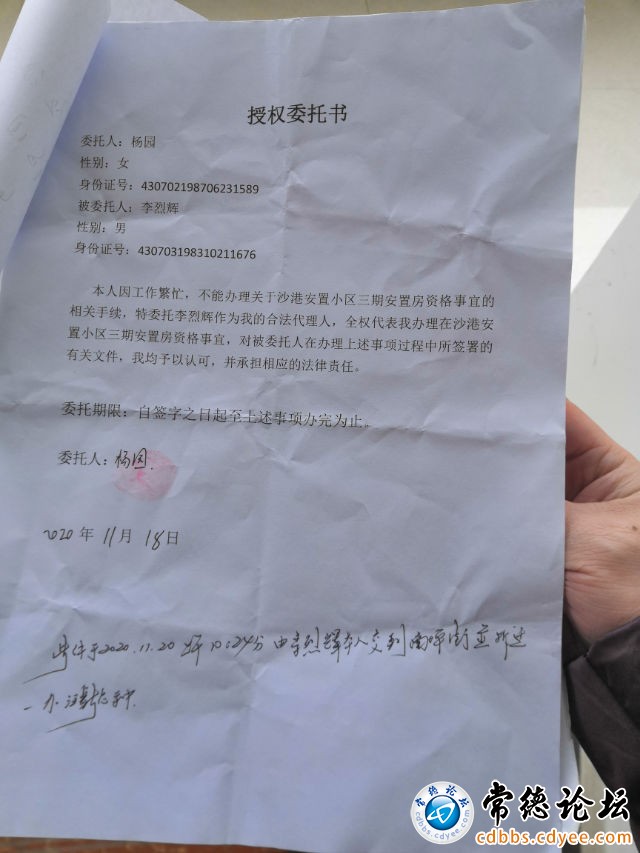 授权委托书
委托人：杨园
性别：女
身份证号：430702198706231589
被委托人：李烈辉
性别：男
身份证号：430703198310211676
本人因工作繁忙，不能办理关于沙港安置小区三期安置房资格事宜的
相关手续，特委托李烈辉作为我的合法代理人，全权代表我办理在沙港安
置小区三期安置房资格事宜，对被委托人在办理上述事项过程中所签署的
有关文件，我均予以认可，并承担相应的法律责任。
委托期限：自签字之日起至上述事项办完为止。
委托人：杨园.
2020年11月18日
于2020.11.20 10:24分由李烈辉本人交到南坪街
一办
常德论坛
cdbbs.cdyee.com